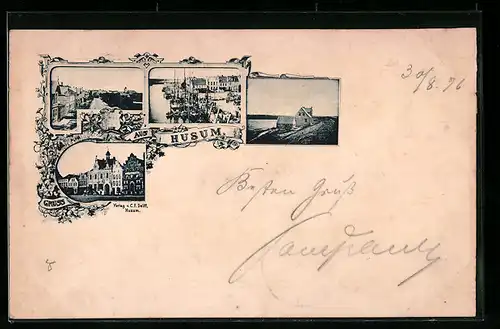 GRUSS AUS HUSUM
Verlag v. C. F. Delff,
Husum.
30/8. 96
Besten Gruß